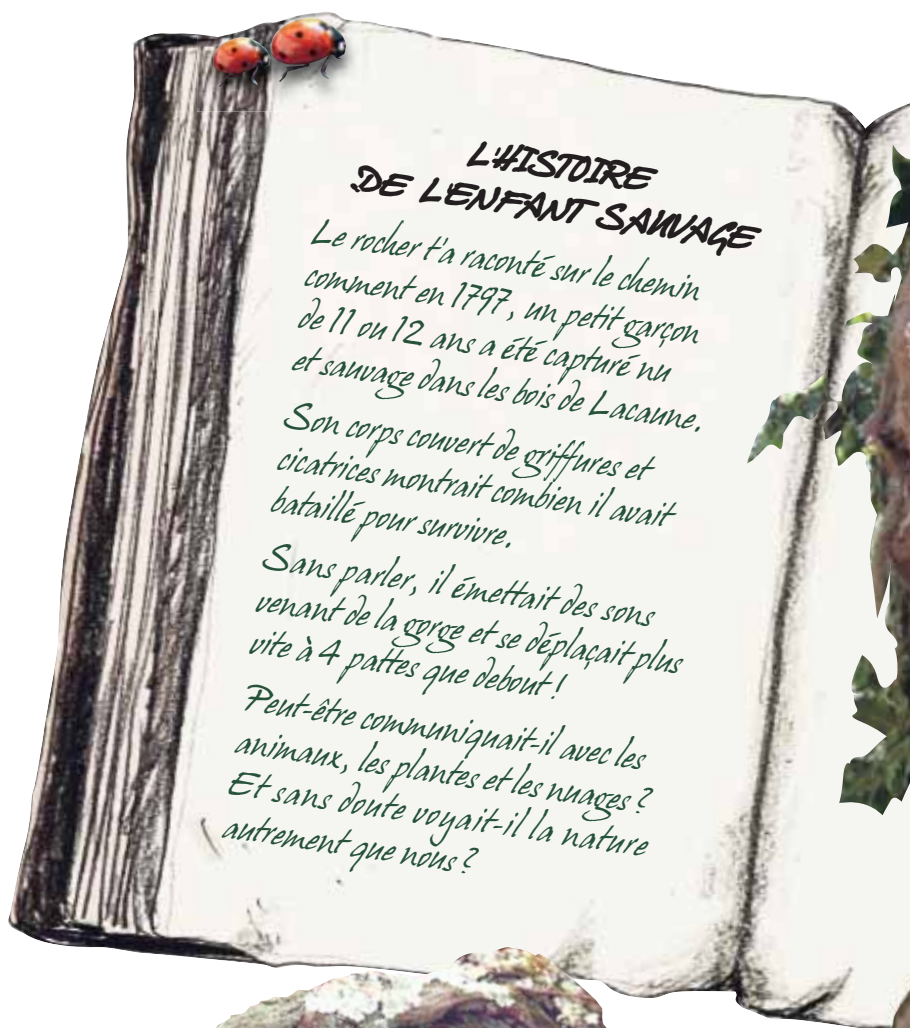 L'HISTOIRE
DE L'ENFANT SAUVAGE
Le rocher t'a raconté sur le chemin
comment en 1797, un petit garçon
de 11 ou 12 ans a été capturé nu
et sauvage dans les bois de Lacaune.
Son corps couvert de griffures et
cicatrices montrait combien il avait
bataillé pour survivre.
Sans parler, il émettait des sons
venant de la gorge et se déplaçait plus
vite à 4 pattes que debout !
Peut-être communiquait-il avec les
animaux, les plantes et les nuages ?
Et sans doute voyait-il la nature
autrement que nous ?